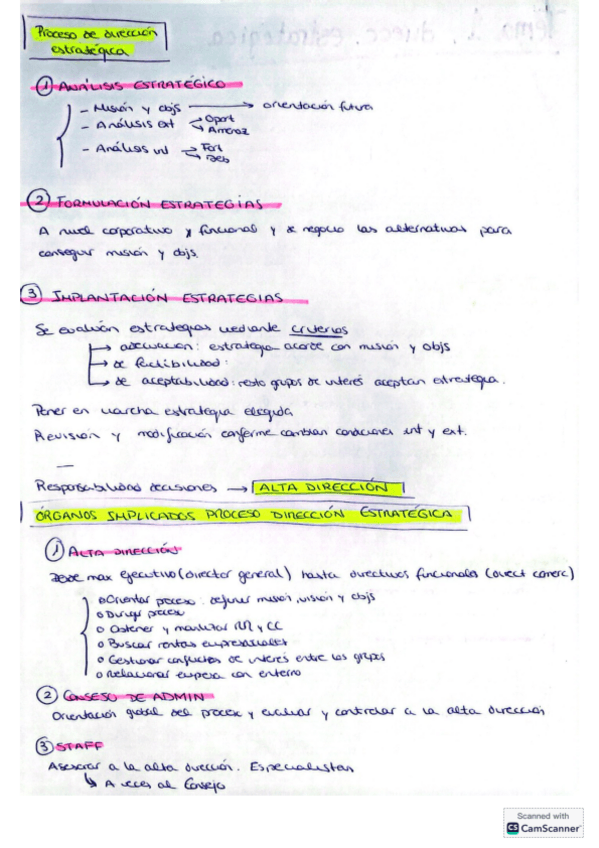 Proceso de dirección
estratégica
① ANÁLISIS ESTRATÉGICO
- Misión y objs → orientación futura
- Análisis ext → Oport
→ Amenaz
- Análisis int → Fort
→ Deb
② FORMULACIÓN ESTRATEGIAS
A nivel corporativo y funcional y de negocio las alternativas para
conseguir misión y objs.
③ IMPLANTACIÓN ESTRATEGIAS
Se evalúan estrategias mediante criterios
→ adecuación: estrategia acorde con misión y objs
→ de factibilidad:
→ de aceptabilidad: resto grupos de interés aceptan estrategia.
Poner en marcha estrategia elegida
Revisión y modificación conforme cambian condiciones int y ext.
Responsabilidad decisiones → ALTA DIRECCIÓN
ÓRGANOS IMPLICADOS PROCESO DIRECCIÓN ESTRATÉGICA
① ALTA DIRECCIÓN
Desde max ejecutivo (director general) hasta directivos funcionales (direct comerc)
o Orientar proceso: definir misión, visión y objs
o Dirigir proceso
o Obtener y movilizar RR y CC
o Buscar rentas empresariales
o Gestionar conflictos de interés entre los grupos
o Relacionar empresa con entorno
② CONSEJO DE ADMIN
Orientación global del proceso y evaluar y controlar a la alta dirección
③ STAFF
Asesorar a la alta dirección. Especialistas
↳ A veces al Consejo
Scanned with
CS CamScanner